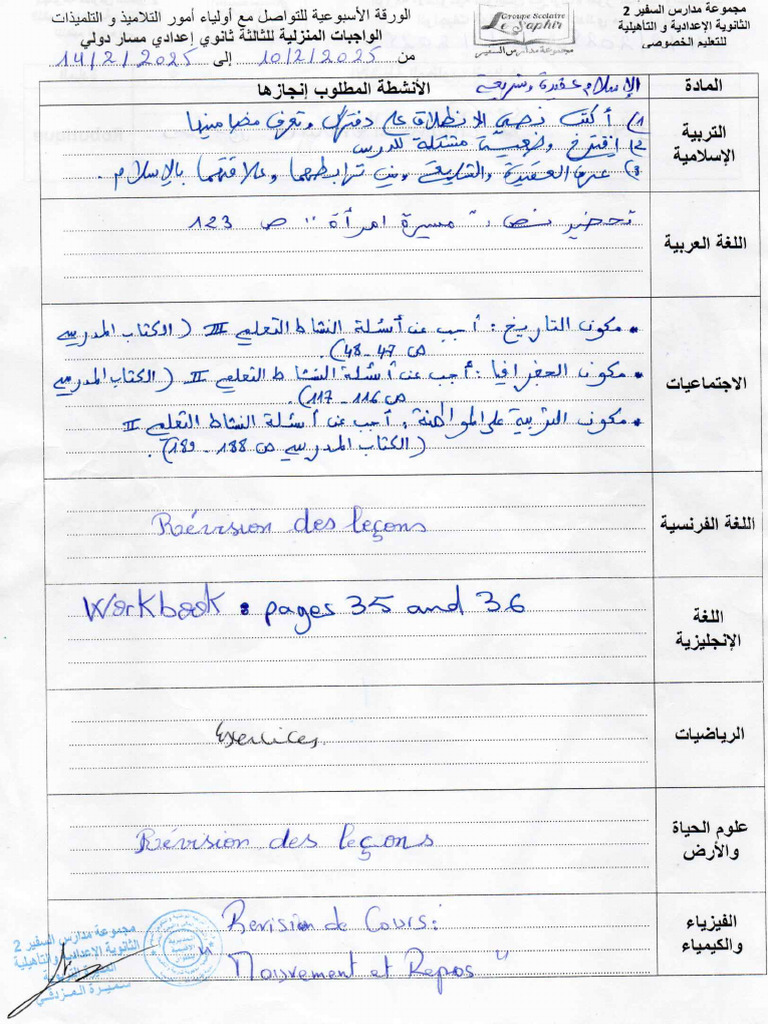 مجموعة مدارس السفير 2
الثانوية الإعدادية و التأهيلية
للتعليم الخصوصي
Groupe Scolaire
Le Saphir
مجموعة مدارس السفير
الورقة الأسبوعية للتواصل مع أولياء أمور التلاميذ و التلميذات
الواجبات المنزلية للثالثة ثانوي إعدادي مسار دولي
من 10/2/2025 إلى 14/2/2025
المادة
الأنشطة المطلوب إنجازها
الإسلام عقيدة وشريعة
التربية الإسلامية
1) أكتب نصي الانطلاق على دفترك وتعرف مضامينها
2) اقترح وضعية مشكلة للدرس
3) عرف العقيدة والشريعة وبين ترابطهما وعلاقتهما بالإسلام .
اللغة العربية
تحضير نص : " مسيرة امرأة " ص 123
الاجتماعيات
• مكون التاريخ : أجب عن أسئلة النشاط التعلمي III (الكتاب المدرسي
ص 47 - 48).
• مكون الجغرافيا : أجب عن أسئلة النشاط التعلمي II (الكتاب المدرسي
ص 116 - 117).
• مكون التربية على المواطنة : أجب عن أسئلة النشاط التعلمي II
(الكتاب المدرسي ص 188 - 189).
اللغة الفرنسية
Révision des leçons
اللغة الإنجليزية
Workbook : pages 35 and 36
الرياضيات
Exercices.
علوم الحياة والأرض
Révision des leçons
الفيزياء والكيمياء
Revision de Cours :
" Mouvement et Repos "
مجموعة مدارس السفير 2
الثانوية الإعدادية والتأهيلية
سميرة المزدني